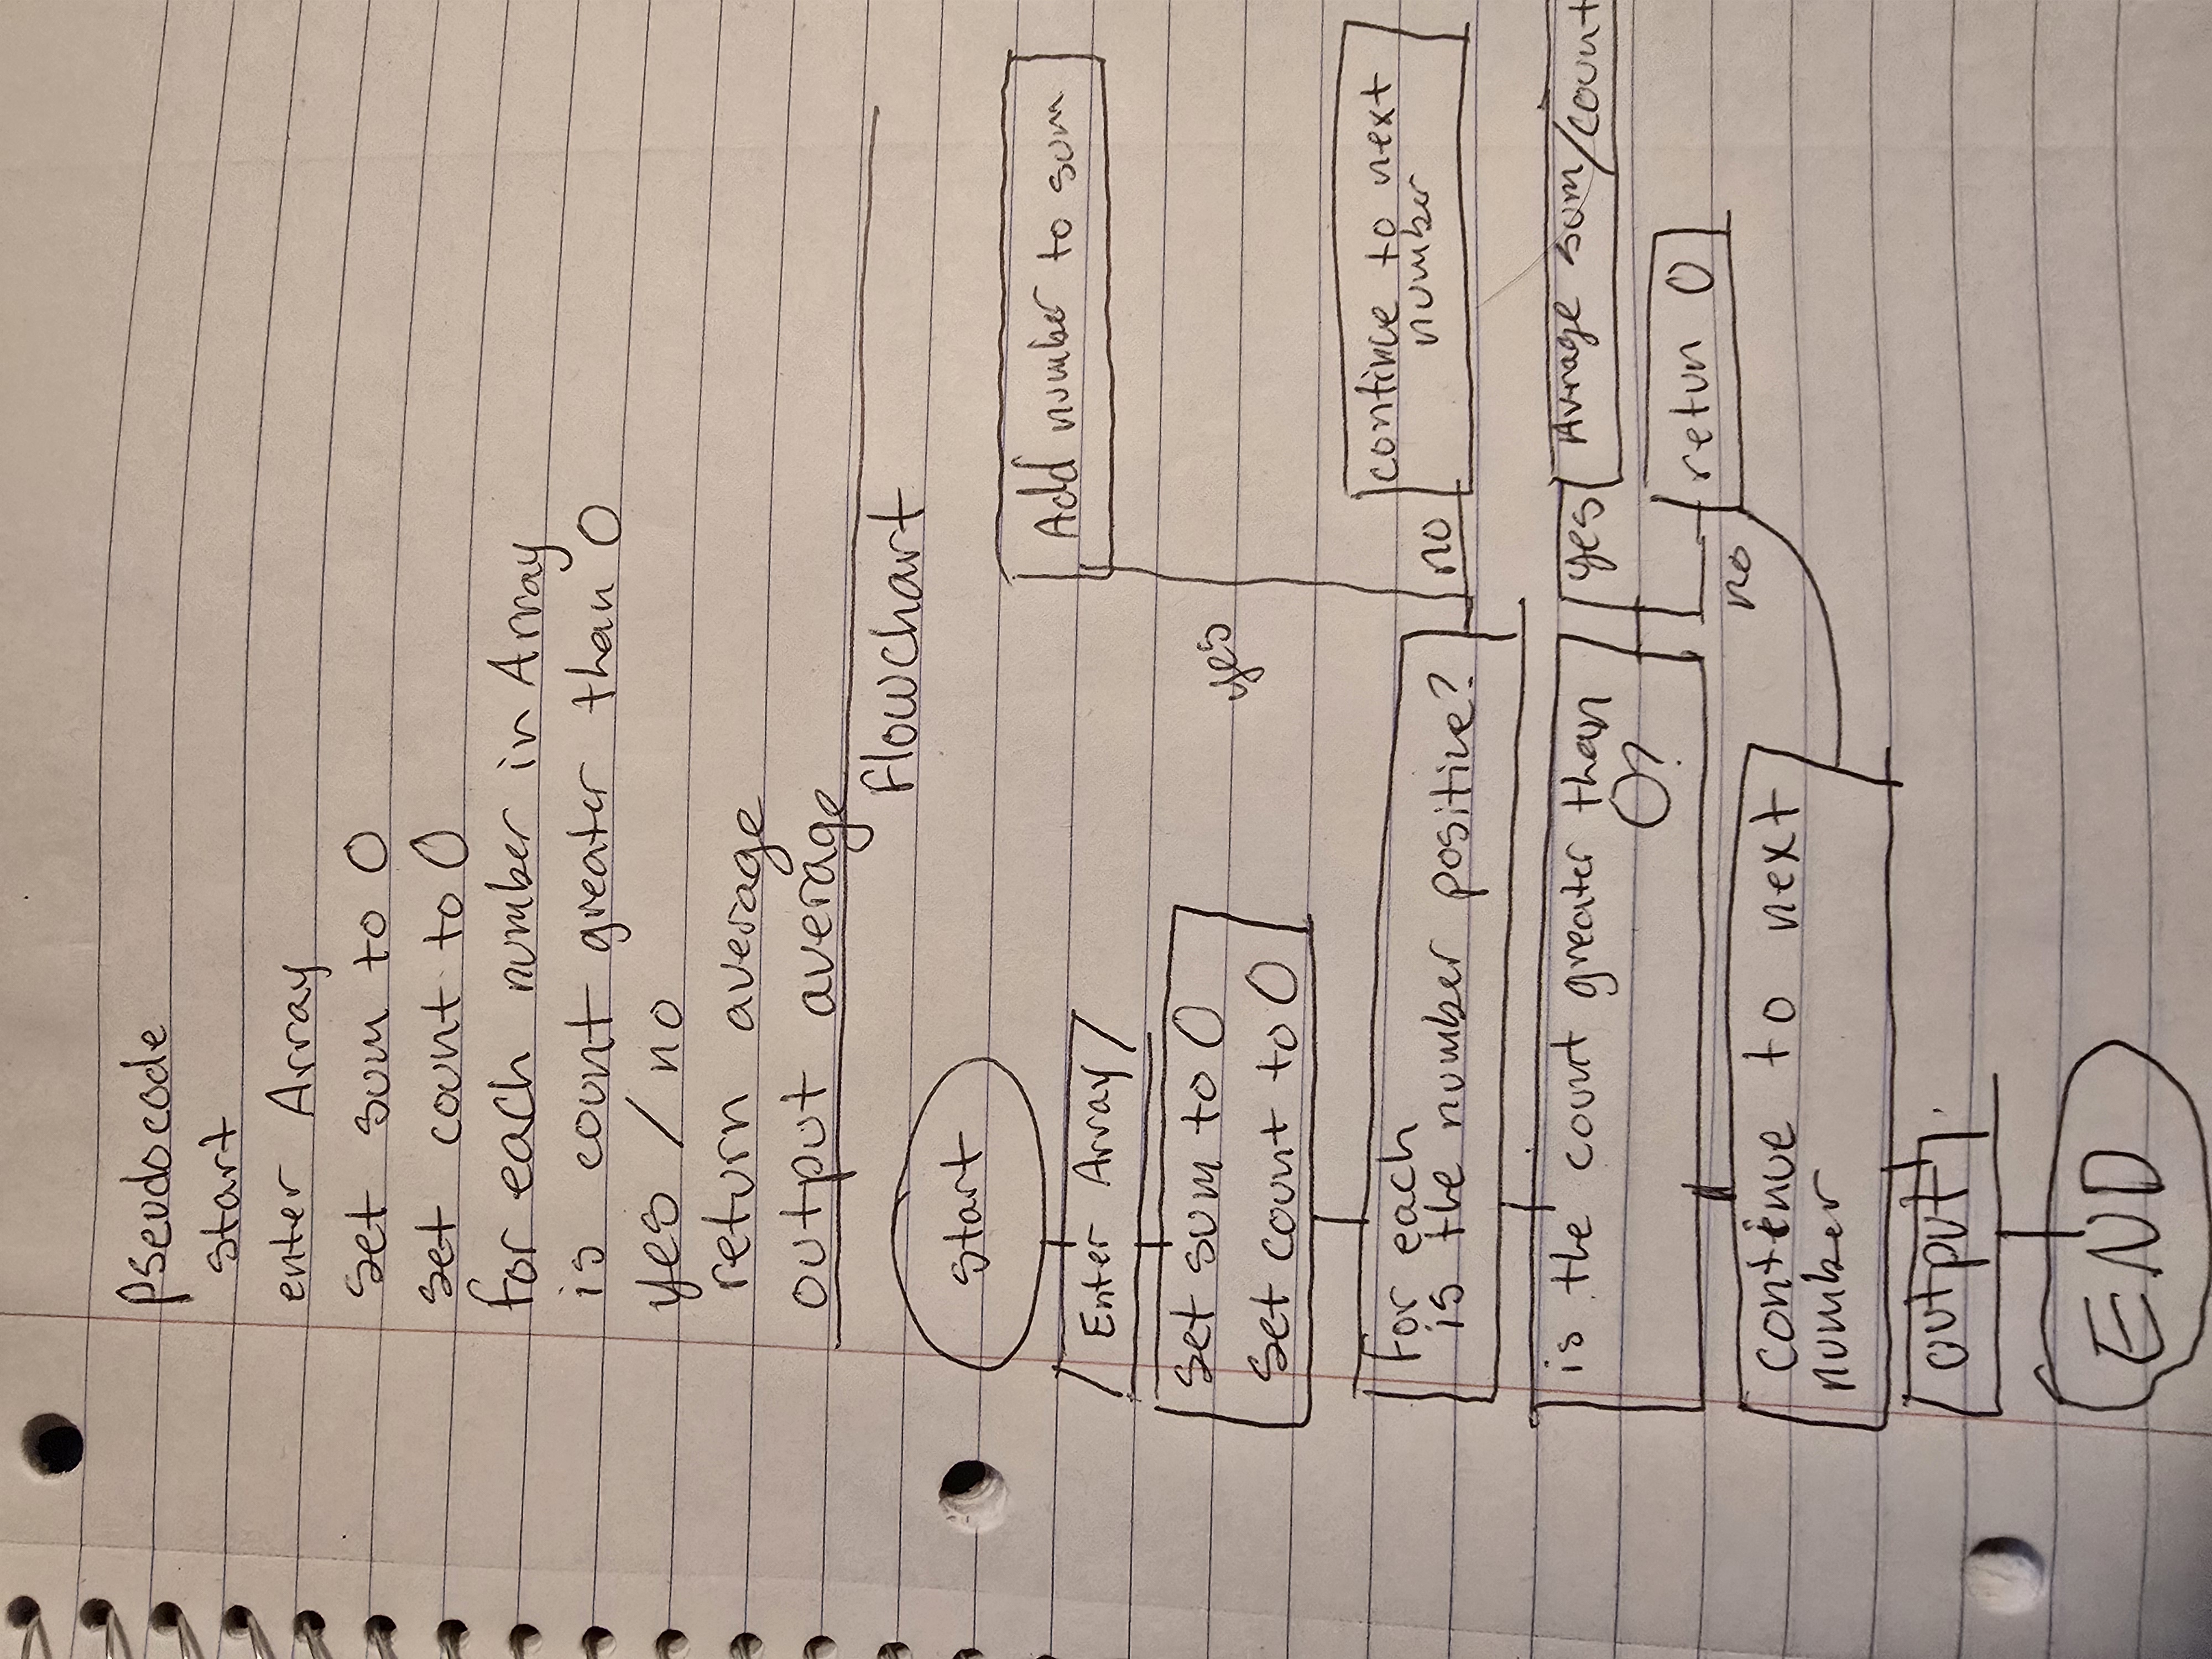 Pseudocode
start
enter Array
set sum to 0
set count to 0
for each number in Array
is count greater than 0
yes / no
return average
output average
Flowchart
start
Enter Array
set sum to 0
set count to 0
yes
Add number to sum
For each
is the number positive?
no
continue to next
number
is the count greater than
0?
yes
Avrage sum/count
no
retun 0
continue to next
number
output
END